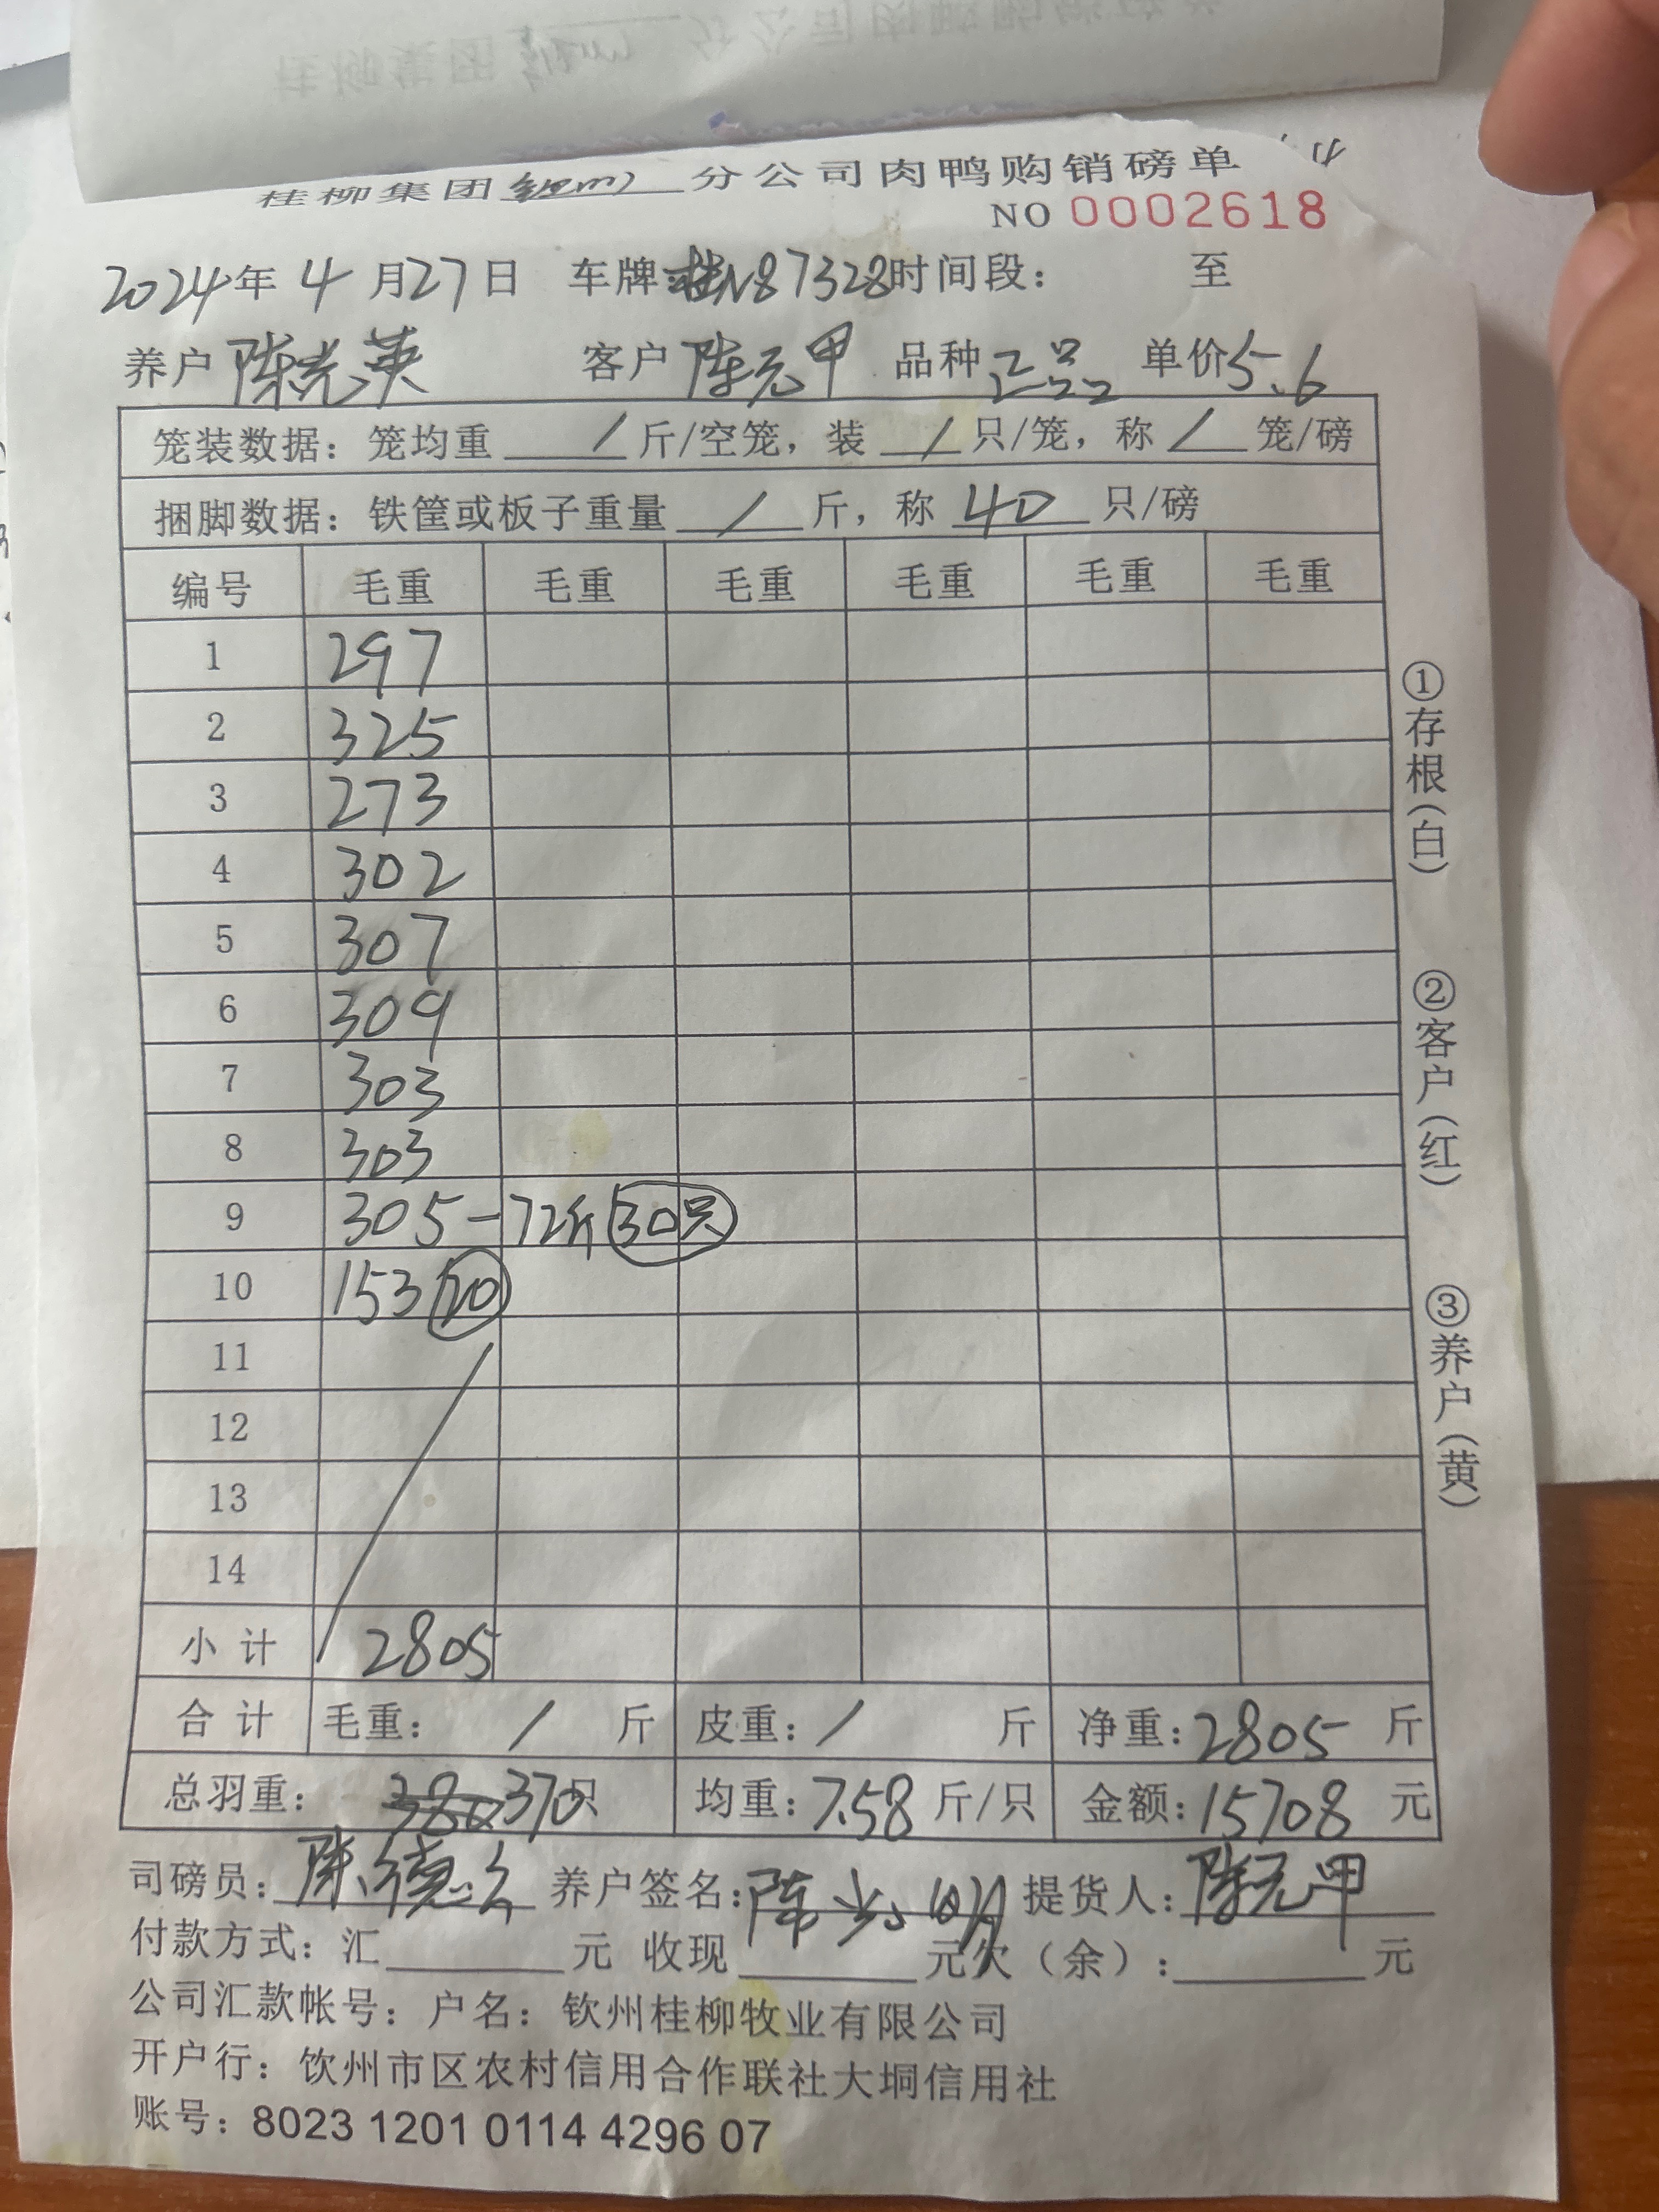 桂柳集团 分公司肉鸭购销磅单
NO 0002618
2024年 4月27日 车牌:桂N87328时间段: 至
养户 陈光英 客户 陈元甲 品种 正品 单价5.6
笼装数据: 笼均重 / 斤/空笼, 装 / 只/笼, 称 / 笼/磅
捆脚数据: 铁筐或板子重量 / 斤, 称 40 只/磅
编号 毛重 毛重 毛重 毛重 毛重 毛重
1 297
2 325
3 273
4 302
5 307
6 309
7 303
8 303
9 305-72斤 30只
10 153 20
11
12
13
14
小计 2805
合计 毛重: / 斤 皮重: / 斤 净重:2805 斤
总羽重: 380 370只 均重:7.58 斤/只 金额:15708 元
司磅员: 陈德 养户签名:陈 提货人:陈元甲
付款方式: 汇 元 收现 元欠(余): 元
公司汇款帐号: 户名: 钦州桂柳牧业有限公司
开户行: 钦州市区农村信用合作联社大垌信用社
账号: 8023 1201 0114 4296 07
①存根(白) ②客户(红) ③养户(黄)